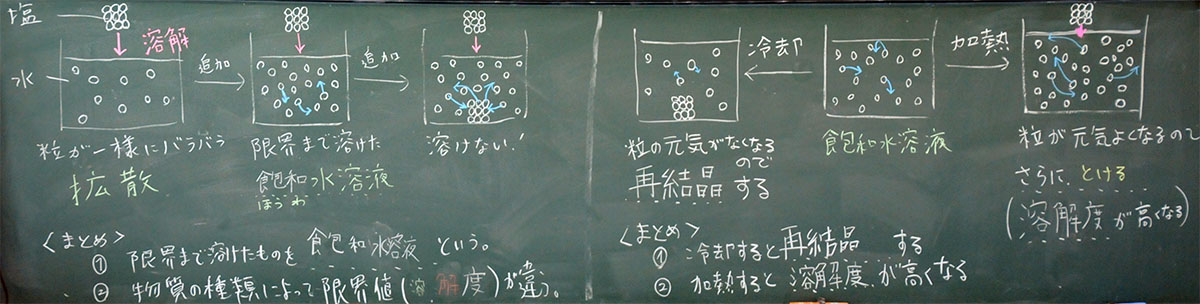 塩
溶解
水
追加
追加
粒が一様にバラバラ
拡散
限界まで溶けた
飽和水溶液
ほうわ
溶けない!
<まとめ>
① 限界まで溶けたものを飽和水溶液という。
② 物質の種類によって限界値(溶解度)が違う。
冷却
加熱
粒の元気がなくなる
ので
再結晶する
飽和水溶液
粒が元気よくなるので
さらに とける
(溶解度が高くなる)
<まとめ>
① 冷却すると再結晶する
② 加熱すると溶解度が高くなる